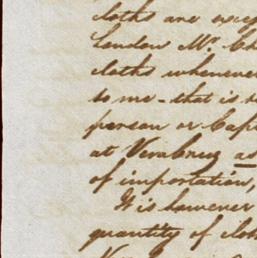 cloths are exce
London Mr. Ch
cloths whenever
to me - that is
person or Cap
at Verabruz as
of importation,
It is however
quantity of clo